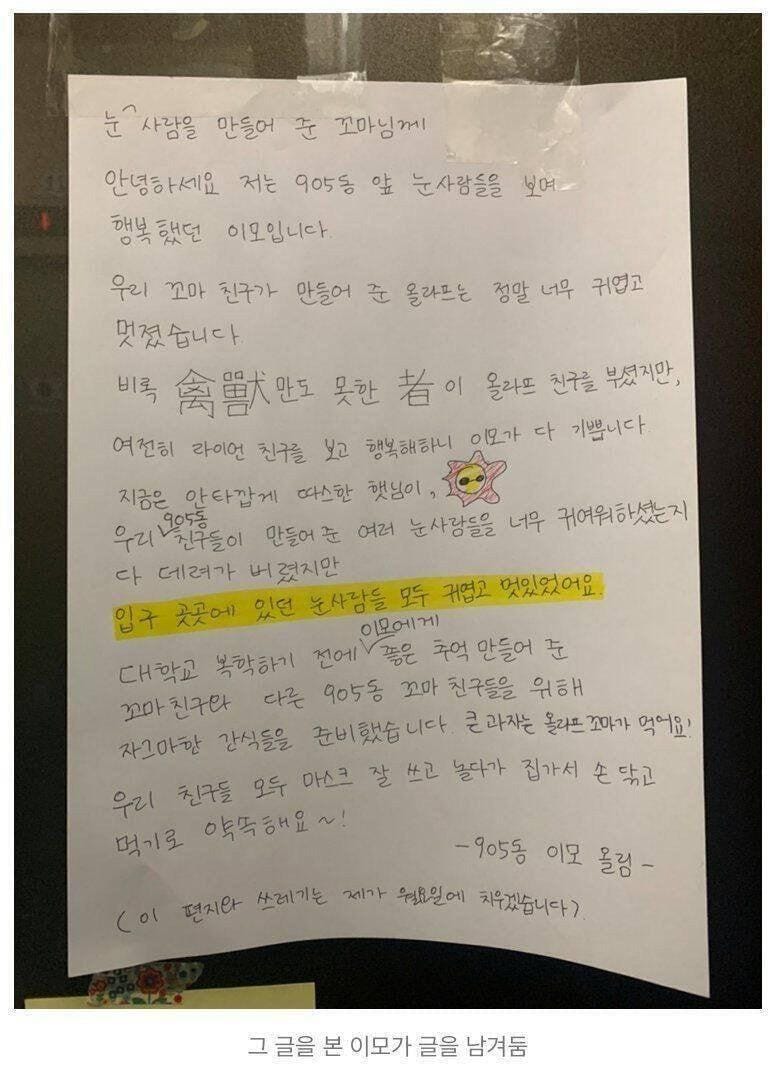 눈^사람을 만들어 준 꼬마님께
안녕하세요 저는 905동 앞 눈사람들을 보며
행복했던 이모입니다.
우리 꼬마 친구가 만들어 준 올라프는 정말 너무 귀엽고
멋졌습니다.
비록 禽獸만도 못한 者이 올라프 친구를 부셨지만,
여전히 라이언 친구를 보고 행복해하니 이모가 다 기쁩니다.
지금은 안타깝게 따스한 햇님이,
우리 905동 친구들이 만들어 준 여러 눈사람들을 너무 귀여워하셨는지
다 데려가 버렸지만
입구 곳곳에 있던 눈사람들 모두 귀엽고 멋있었어요.
대학교 복학하기 전에 이모에게 좋은 추억 만들어 준
꼬마친구와 다른 905동 꼬마 친구들을 위해
자그마한 간식들을 준비했습니다. 큰 과자는 올라프 꼬마가 먹어요!
우리 친구들 모두 마스크 잘 쓰고 놀다가 집가서 손 닦고
먹기로 약쏙해요~!
-905동 이모 올림-
(이 편지와 쓰레기는 제가 월요일에 치우겠습니다).
그 글을 본 이모가 글을 남겨둠